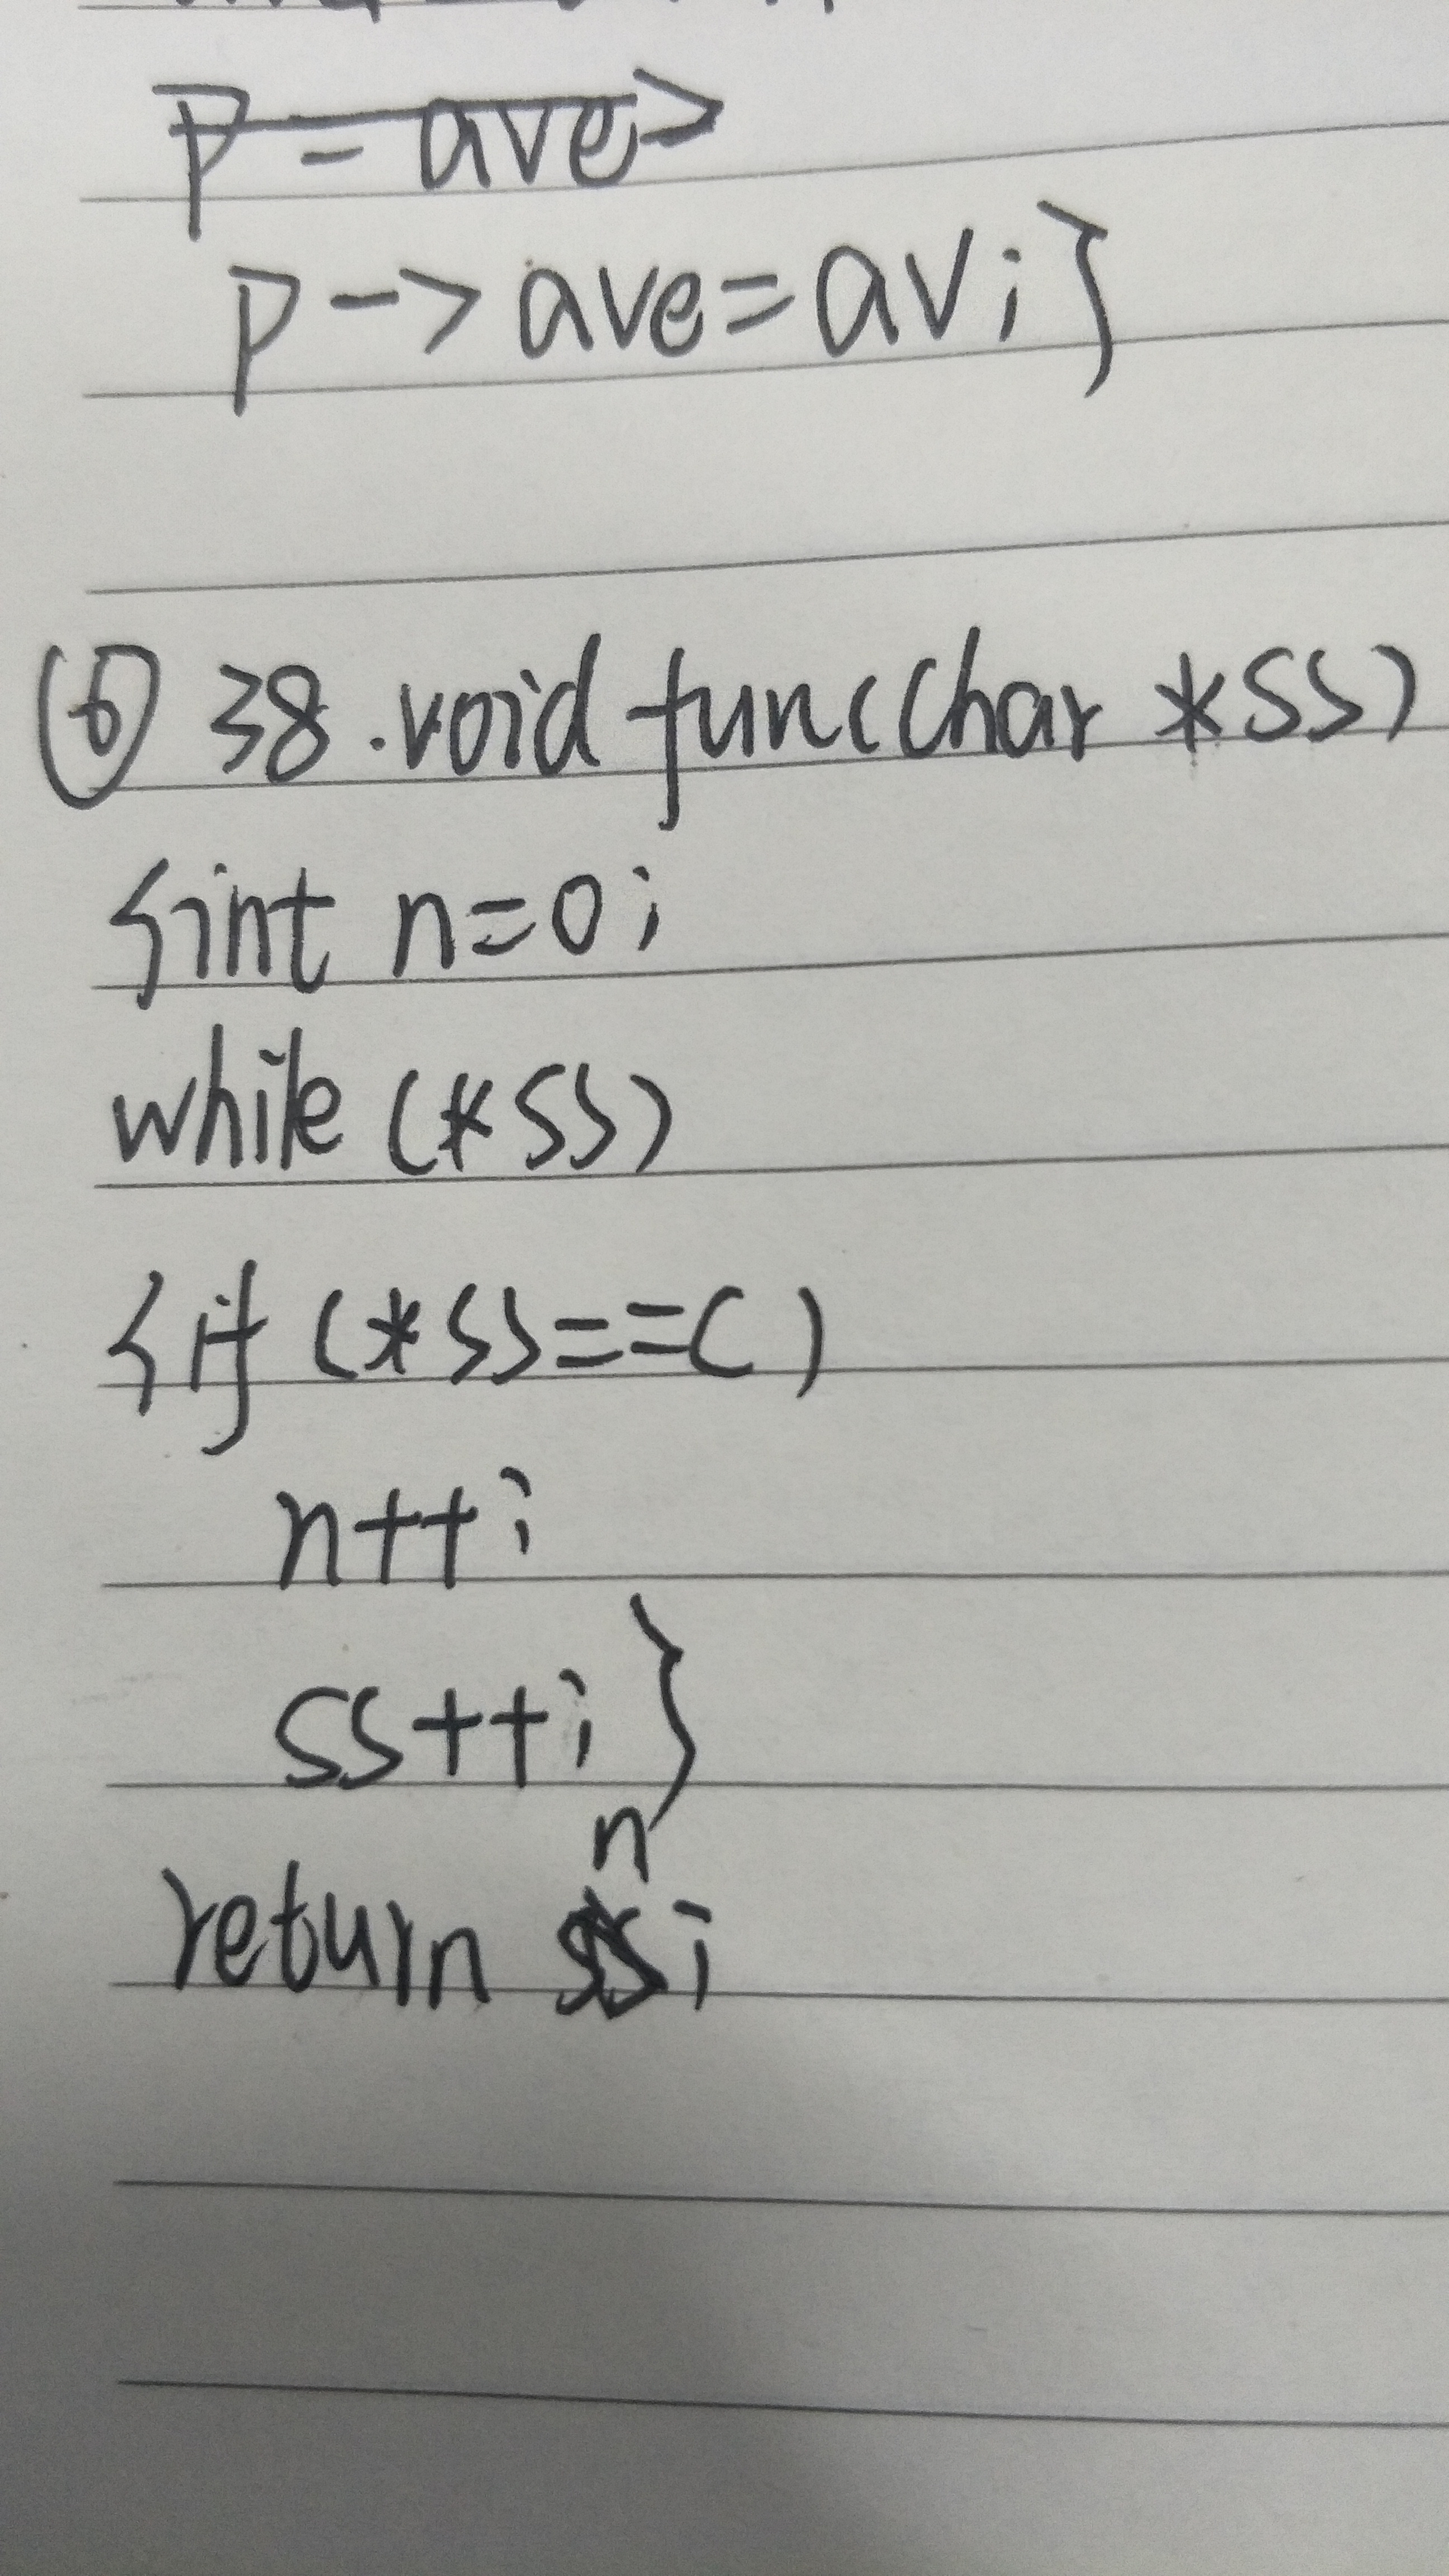 P=ave>
P->ave=av;}
⑥ 38.void fun(char *ss)
{int n=0;
while(*ss)
{if(*ss==c)
n++;
ss++;}
n
return ss;